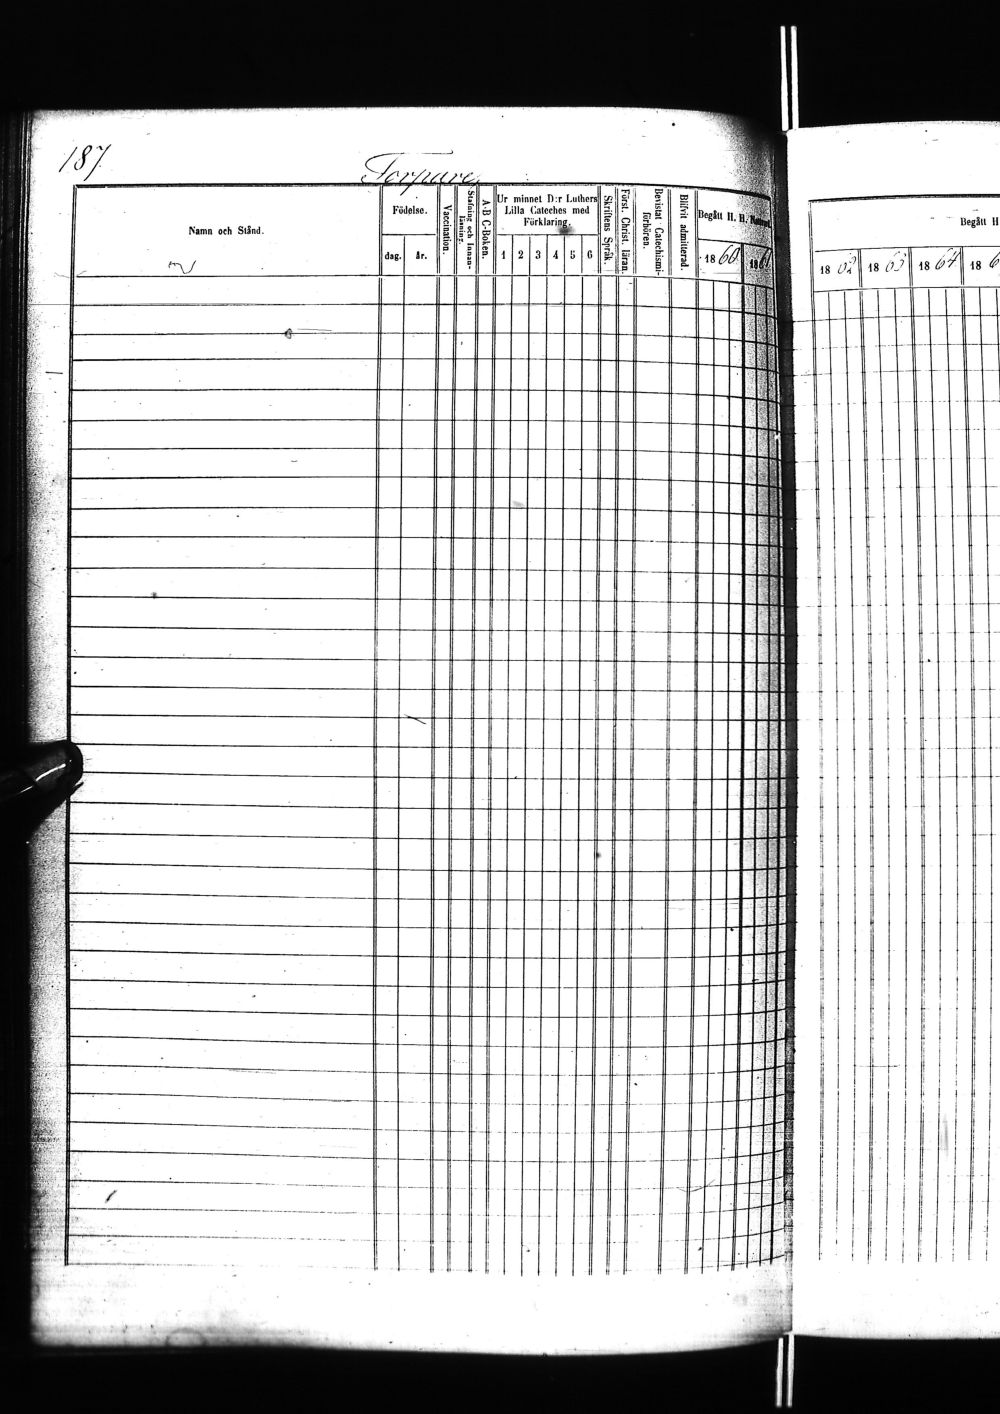 187
Torpare
Namn och Stånd.
Födelse.
dag. år.
Vaccination.
Stafning och Innan-
läsning.
A-B C-Boken.
Ur minnet D:r Luthers
Lilla Cateches med
Förklaring.
1 2 3 4 5 6
Skriftens Språk.
Först. Christ. läran.
Bevistat Catechismi-
förhören.
Blifvit admitterad.
Begått H. H. Nattvard.
1860 1861
Begått H
1862 1863 1864 186